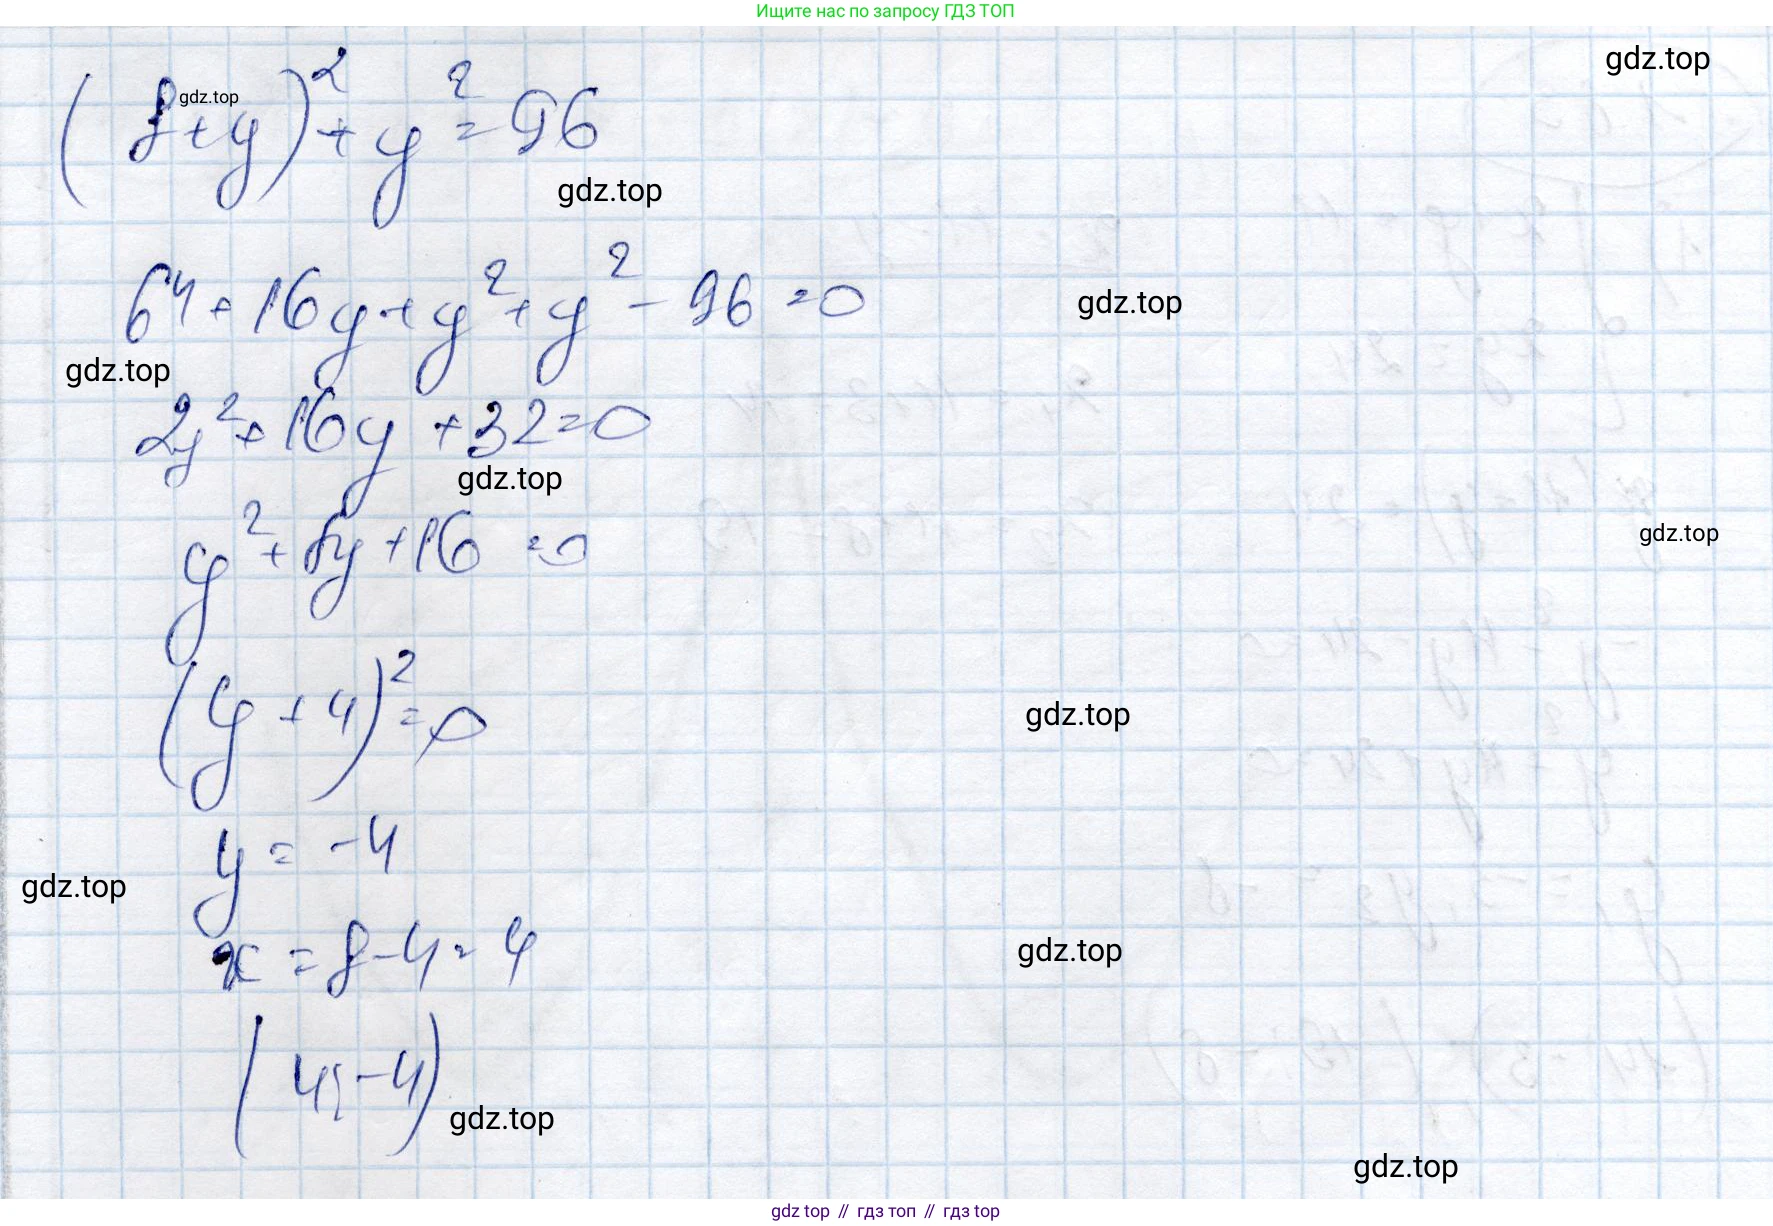 Ищите нас по запросу ГДЗ ТОП
gdz.top
(8+y)² + y² = 96
gdz.top
gdz.top
64 + 16y + y² + y² - 96 = 0
gdz.top
gdz.top
2y² + 16y + 32 = 0
gdz.top
y² + 8y + 16 = 0
gdz.top
(y + 4)² = 0
gdz.top
y = -4
gdz.top
x = 8 - 4 = 4
gdz.top
(4; -4)
gdz.top
gdz.top
gdz top // гдз топ // гдз top